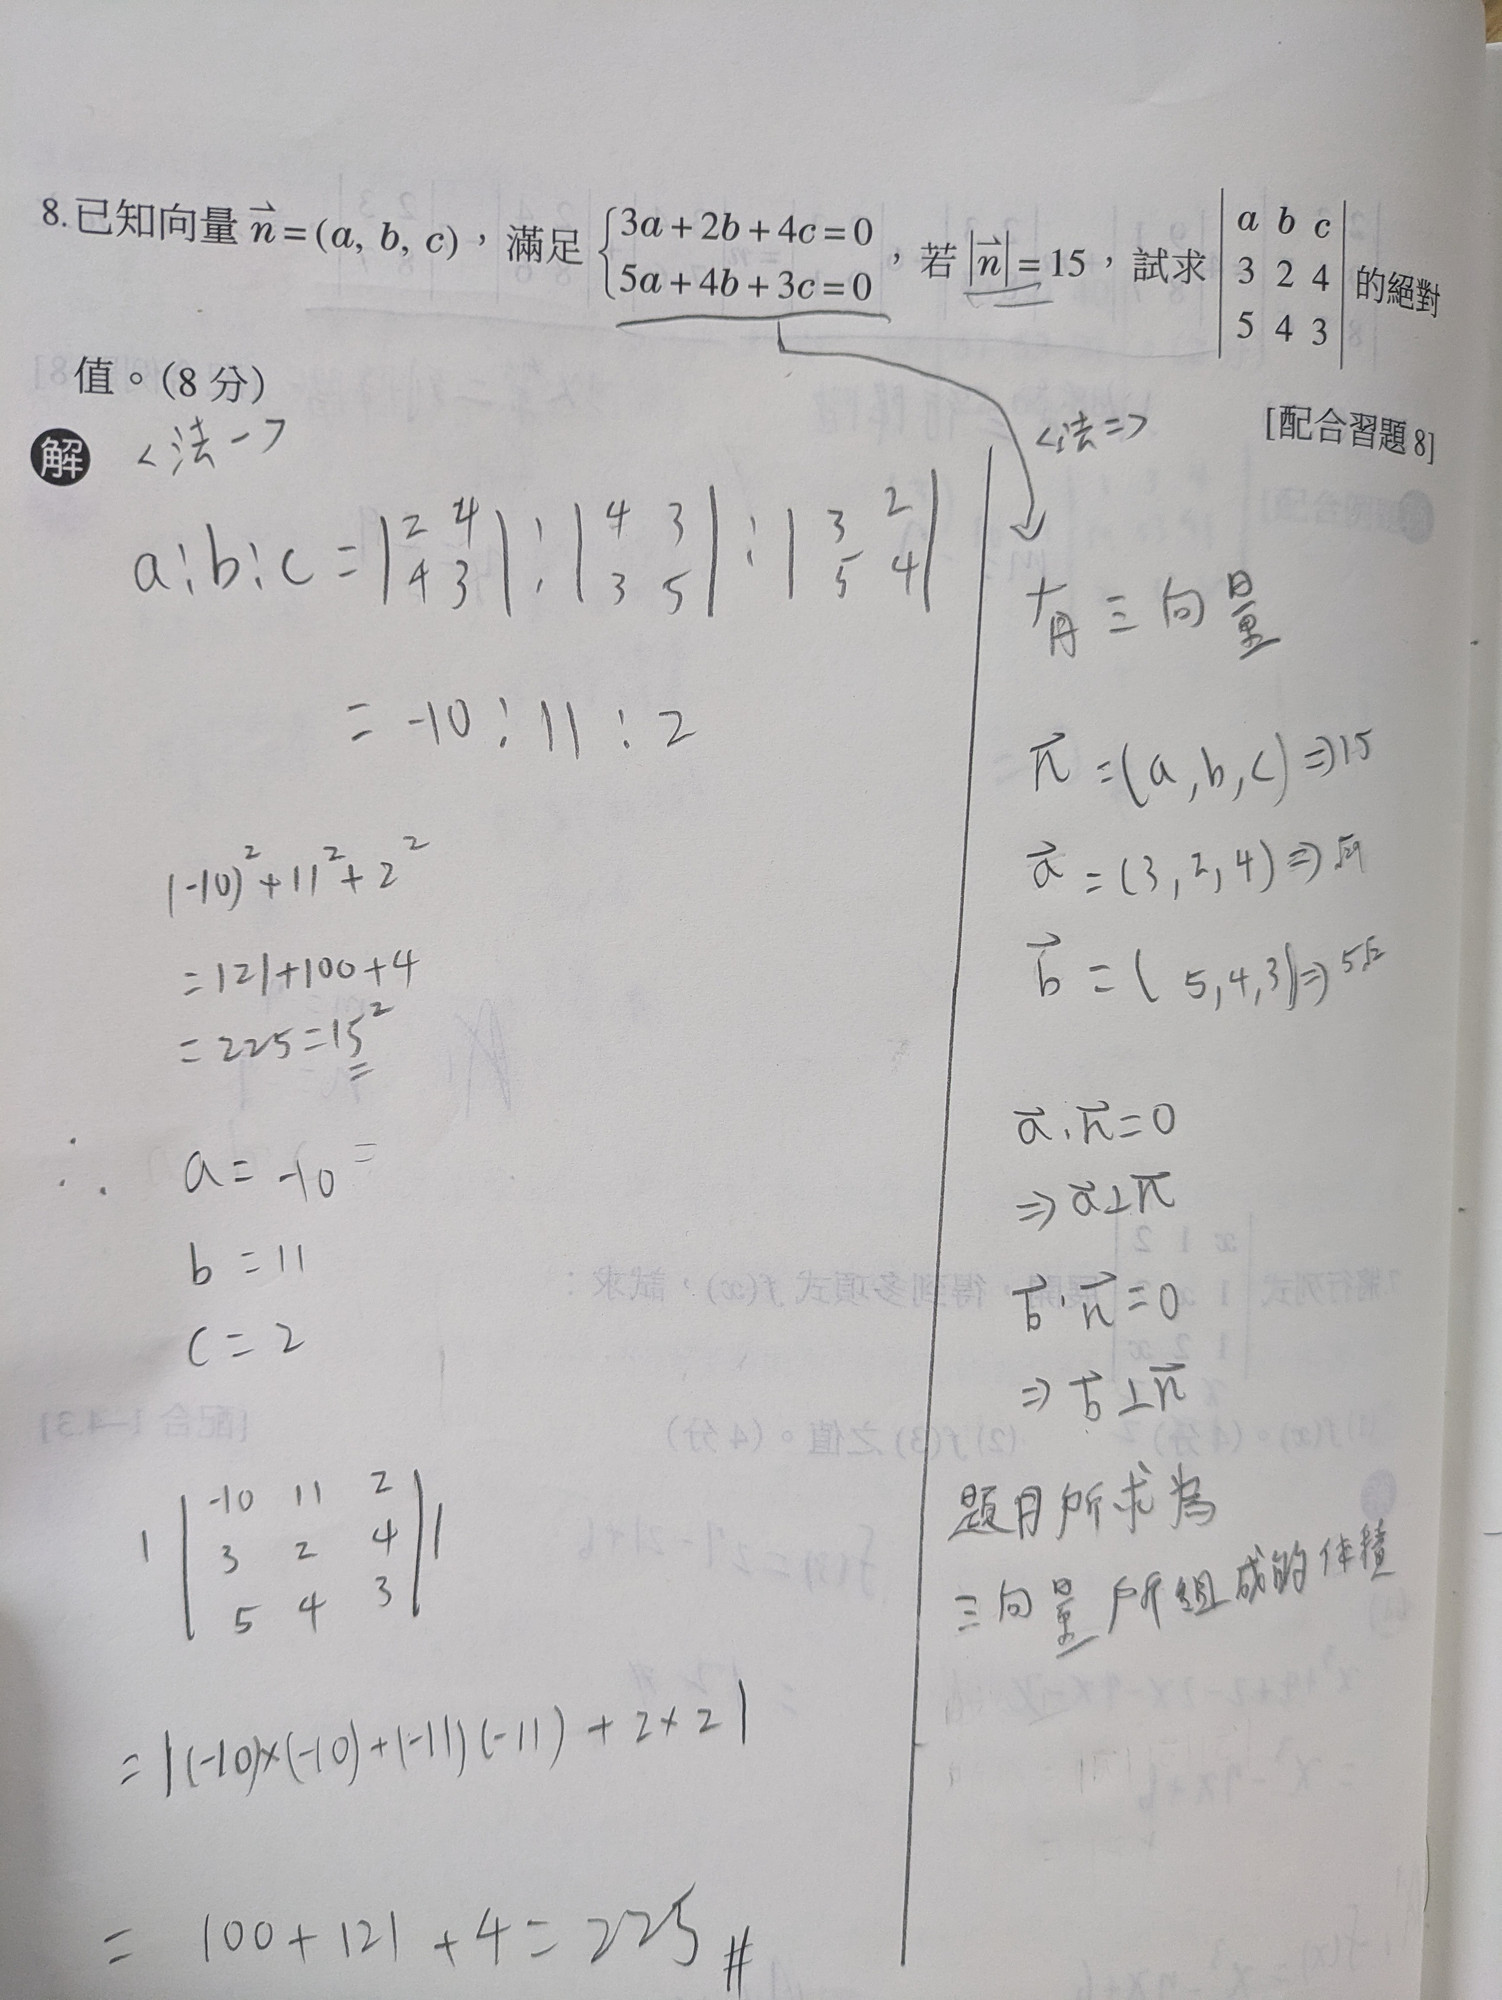 8.已知向量 n=(a, b, c)，滿足 {3a+2b+4c=0 ，若 |n|=15，試求 |a b c| 的絕對
5a+4b+3c=0
3 2 4
5 4 3
值。(8 分)
[配合習題 8]
解 <法一>
a:b:c = |2 4| : |4 3| : |3 2|
4 3 3 5 5 4
= -10 : 11 : 2
(-10)²+11²+2²
=121+100+4
=225=15²
∴ a= -10
b =11
c= 2
| |-10 11 2| |
3 2 4
5 4 3
=|(-10)×(-10)+(-11)(-11)+2×2|
= 100+121+4=225#
<法二>
有三向量
n=(a,b,c)⇒15
a=(3,2,4)⇒√29
b=(5,4,3)⇒5√2
a·n=0
⇒a⊥n
b·n=0
⇒b⊥n
題目所求為
三向量所組成的体積